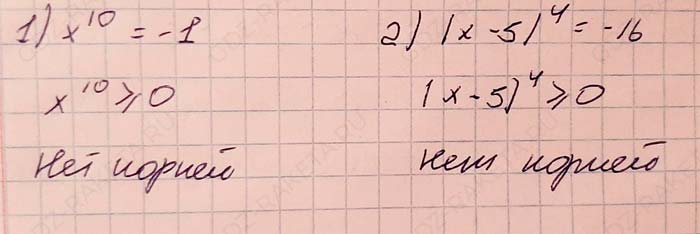 1) x¹⁰ = -1
x¹⁰ ⩾ 0
Нет корней
2) (x - 5)⁴ = -16
(x - 5)⁴ ⩾ 0
Нет корней